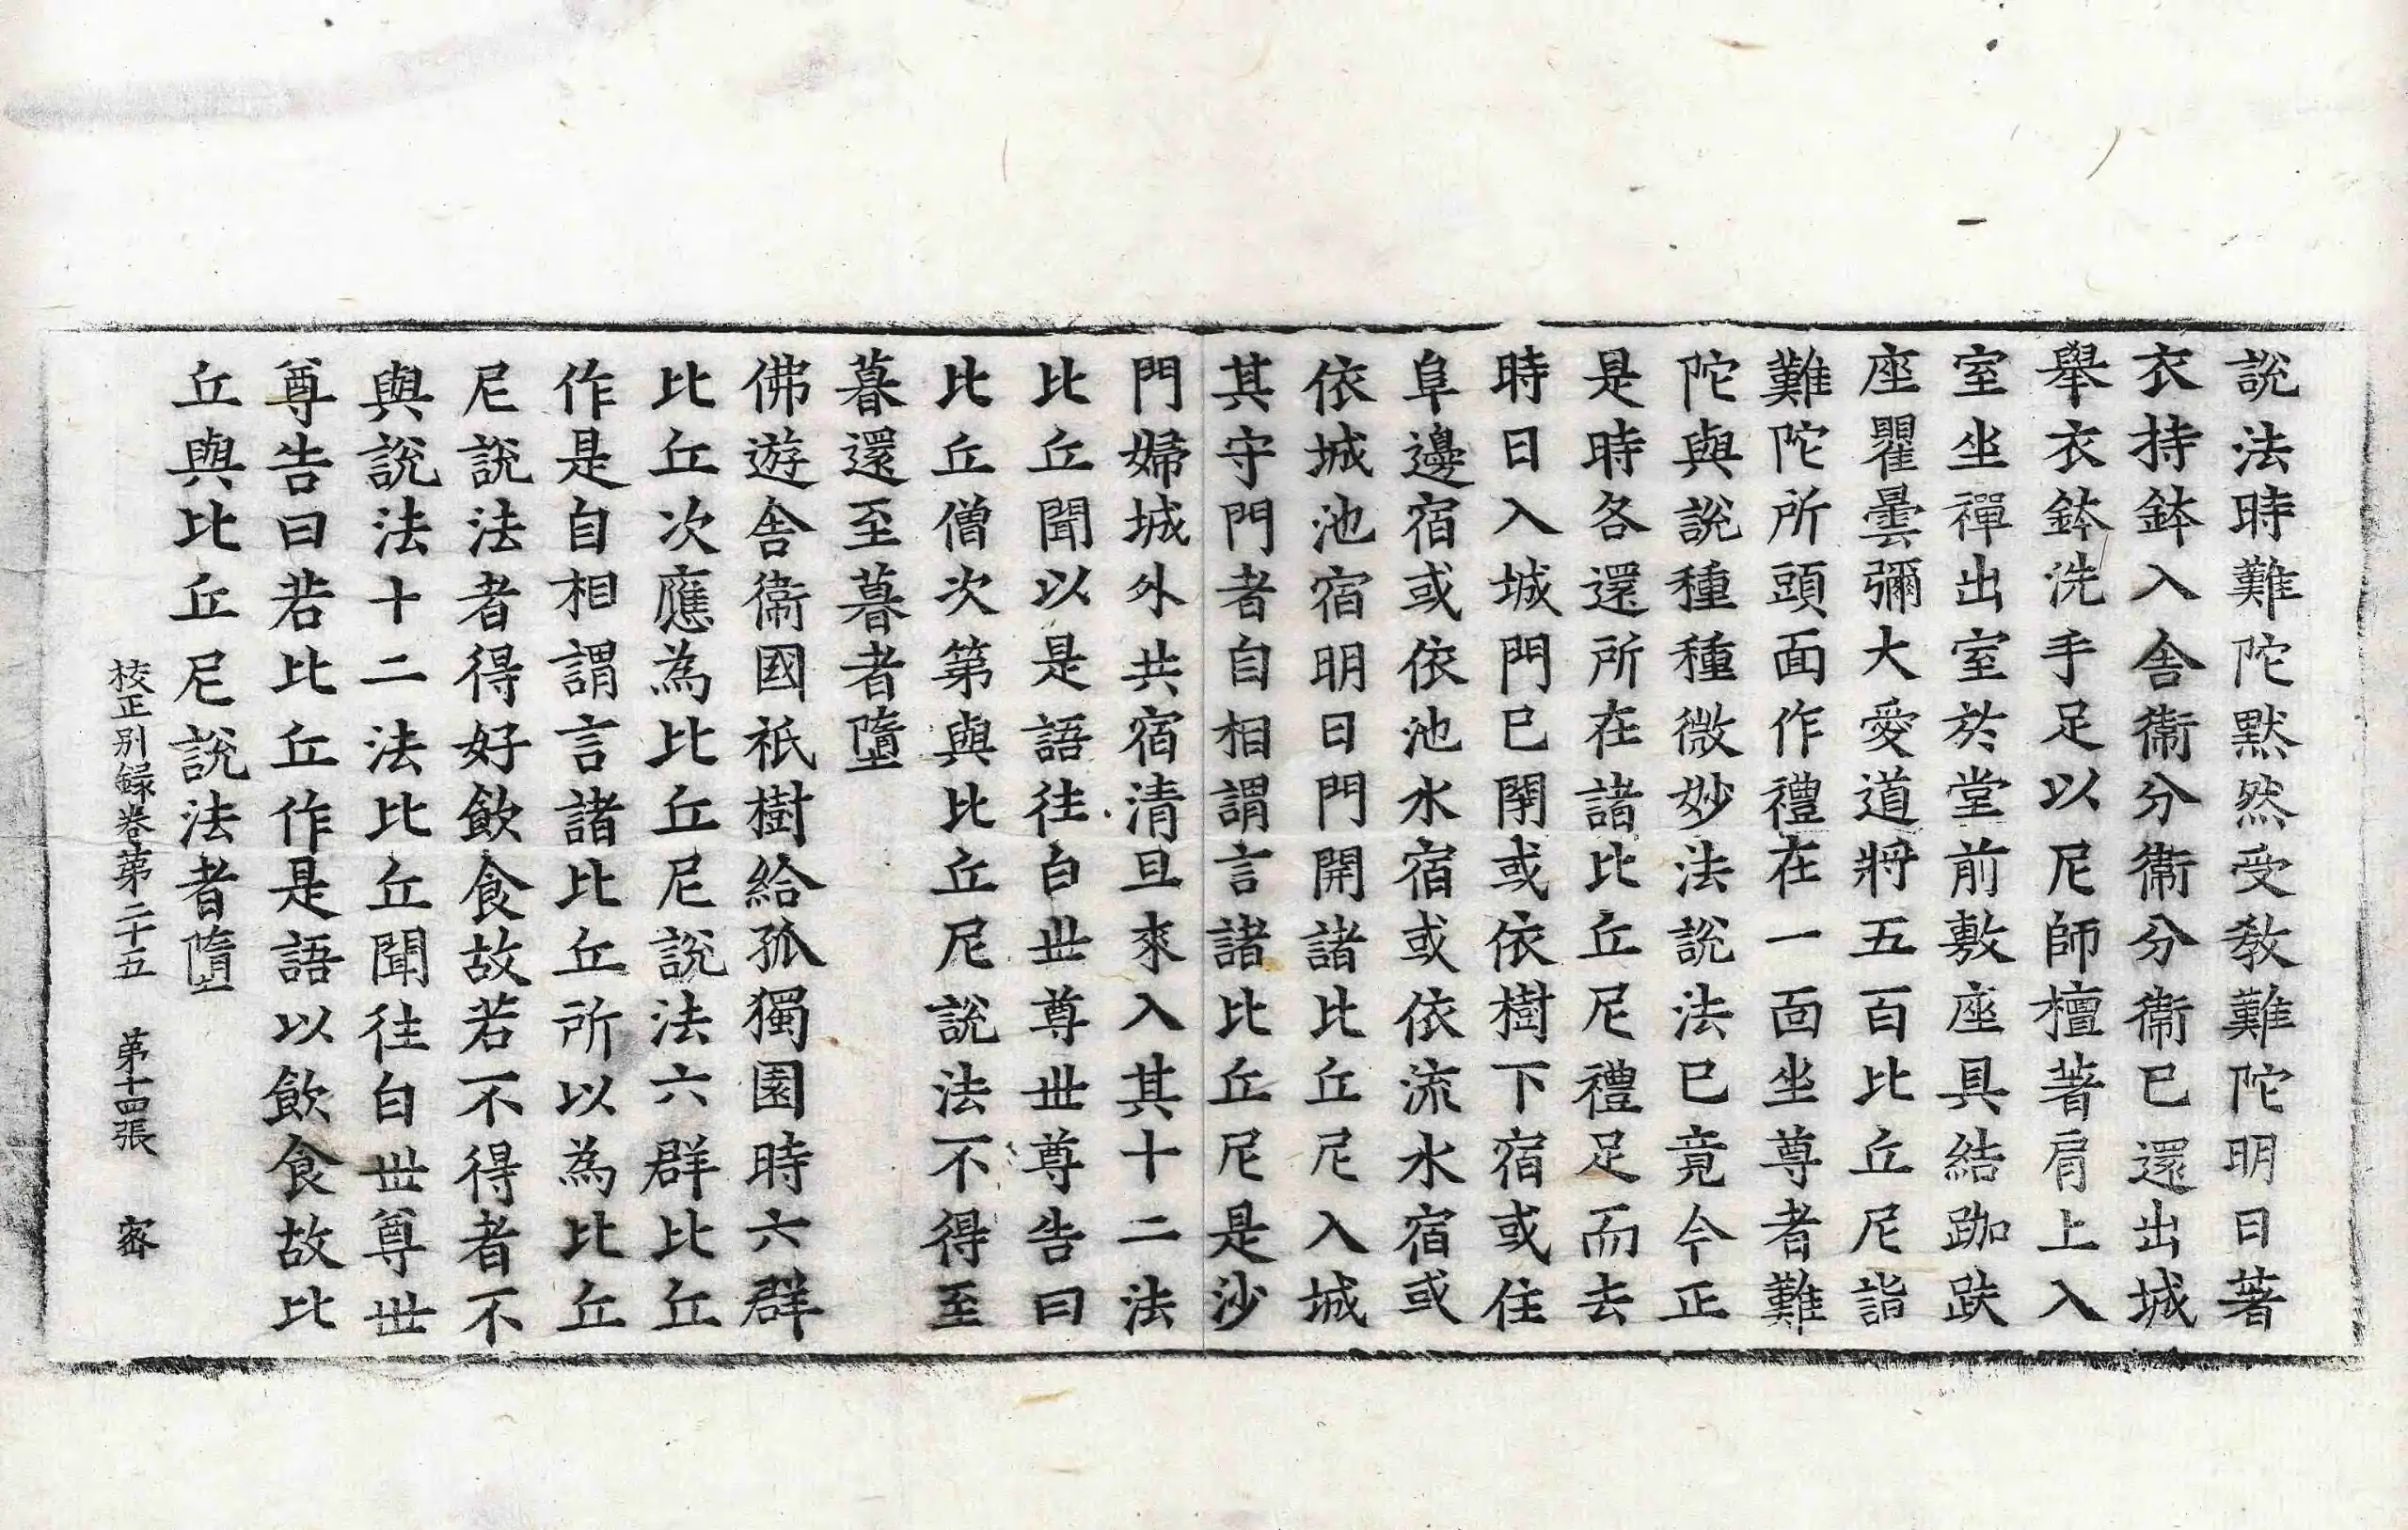 説法時難陀默然受教難陀明日著
衣持鉢入舎衞分衞分衞已還出城
舉衣鉢洗手足以尼師檀著肩上入
室坐禪出室於堂前敷座具結跏趺
座瞿曇彌大愛道將五百比丘尼詣
難陀所頭面作禮在一面坐尊者難
陀與説種種微妙法説法已竟今正
是時各還所在諸比丘尼禮足而去
時日入城門已閇或依樹下宿或住
阜邊宿或依池水宿或依流水宿或
依城池宿明日門開諸比丘尼入城
其守門者自相謂言諸比丘尼是沙
門婦城外共宿清旦來入其十二法
比丘聞以是語往白世尊世尊告曰
比丘僧次第與比丘尼説法不得至
暮還至暮者墮
佛遊舎衞國祇樹給孤獨園時六群
比丘次應為比丘尼説法六群比丘
作是自相謂言諸比丘所以為比丘
尼説法者得好飲食故若不得者不
與説法十二法比丘聞往白世尊世
尊告曰若比丘作是語以飲食故比
丘與比丘尼説法者墮
校正別録卷第二十五 第十四張 密